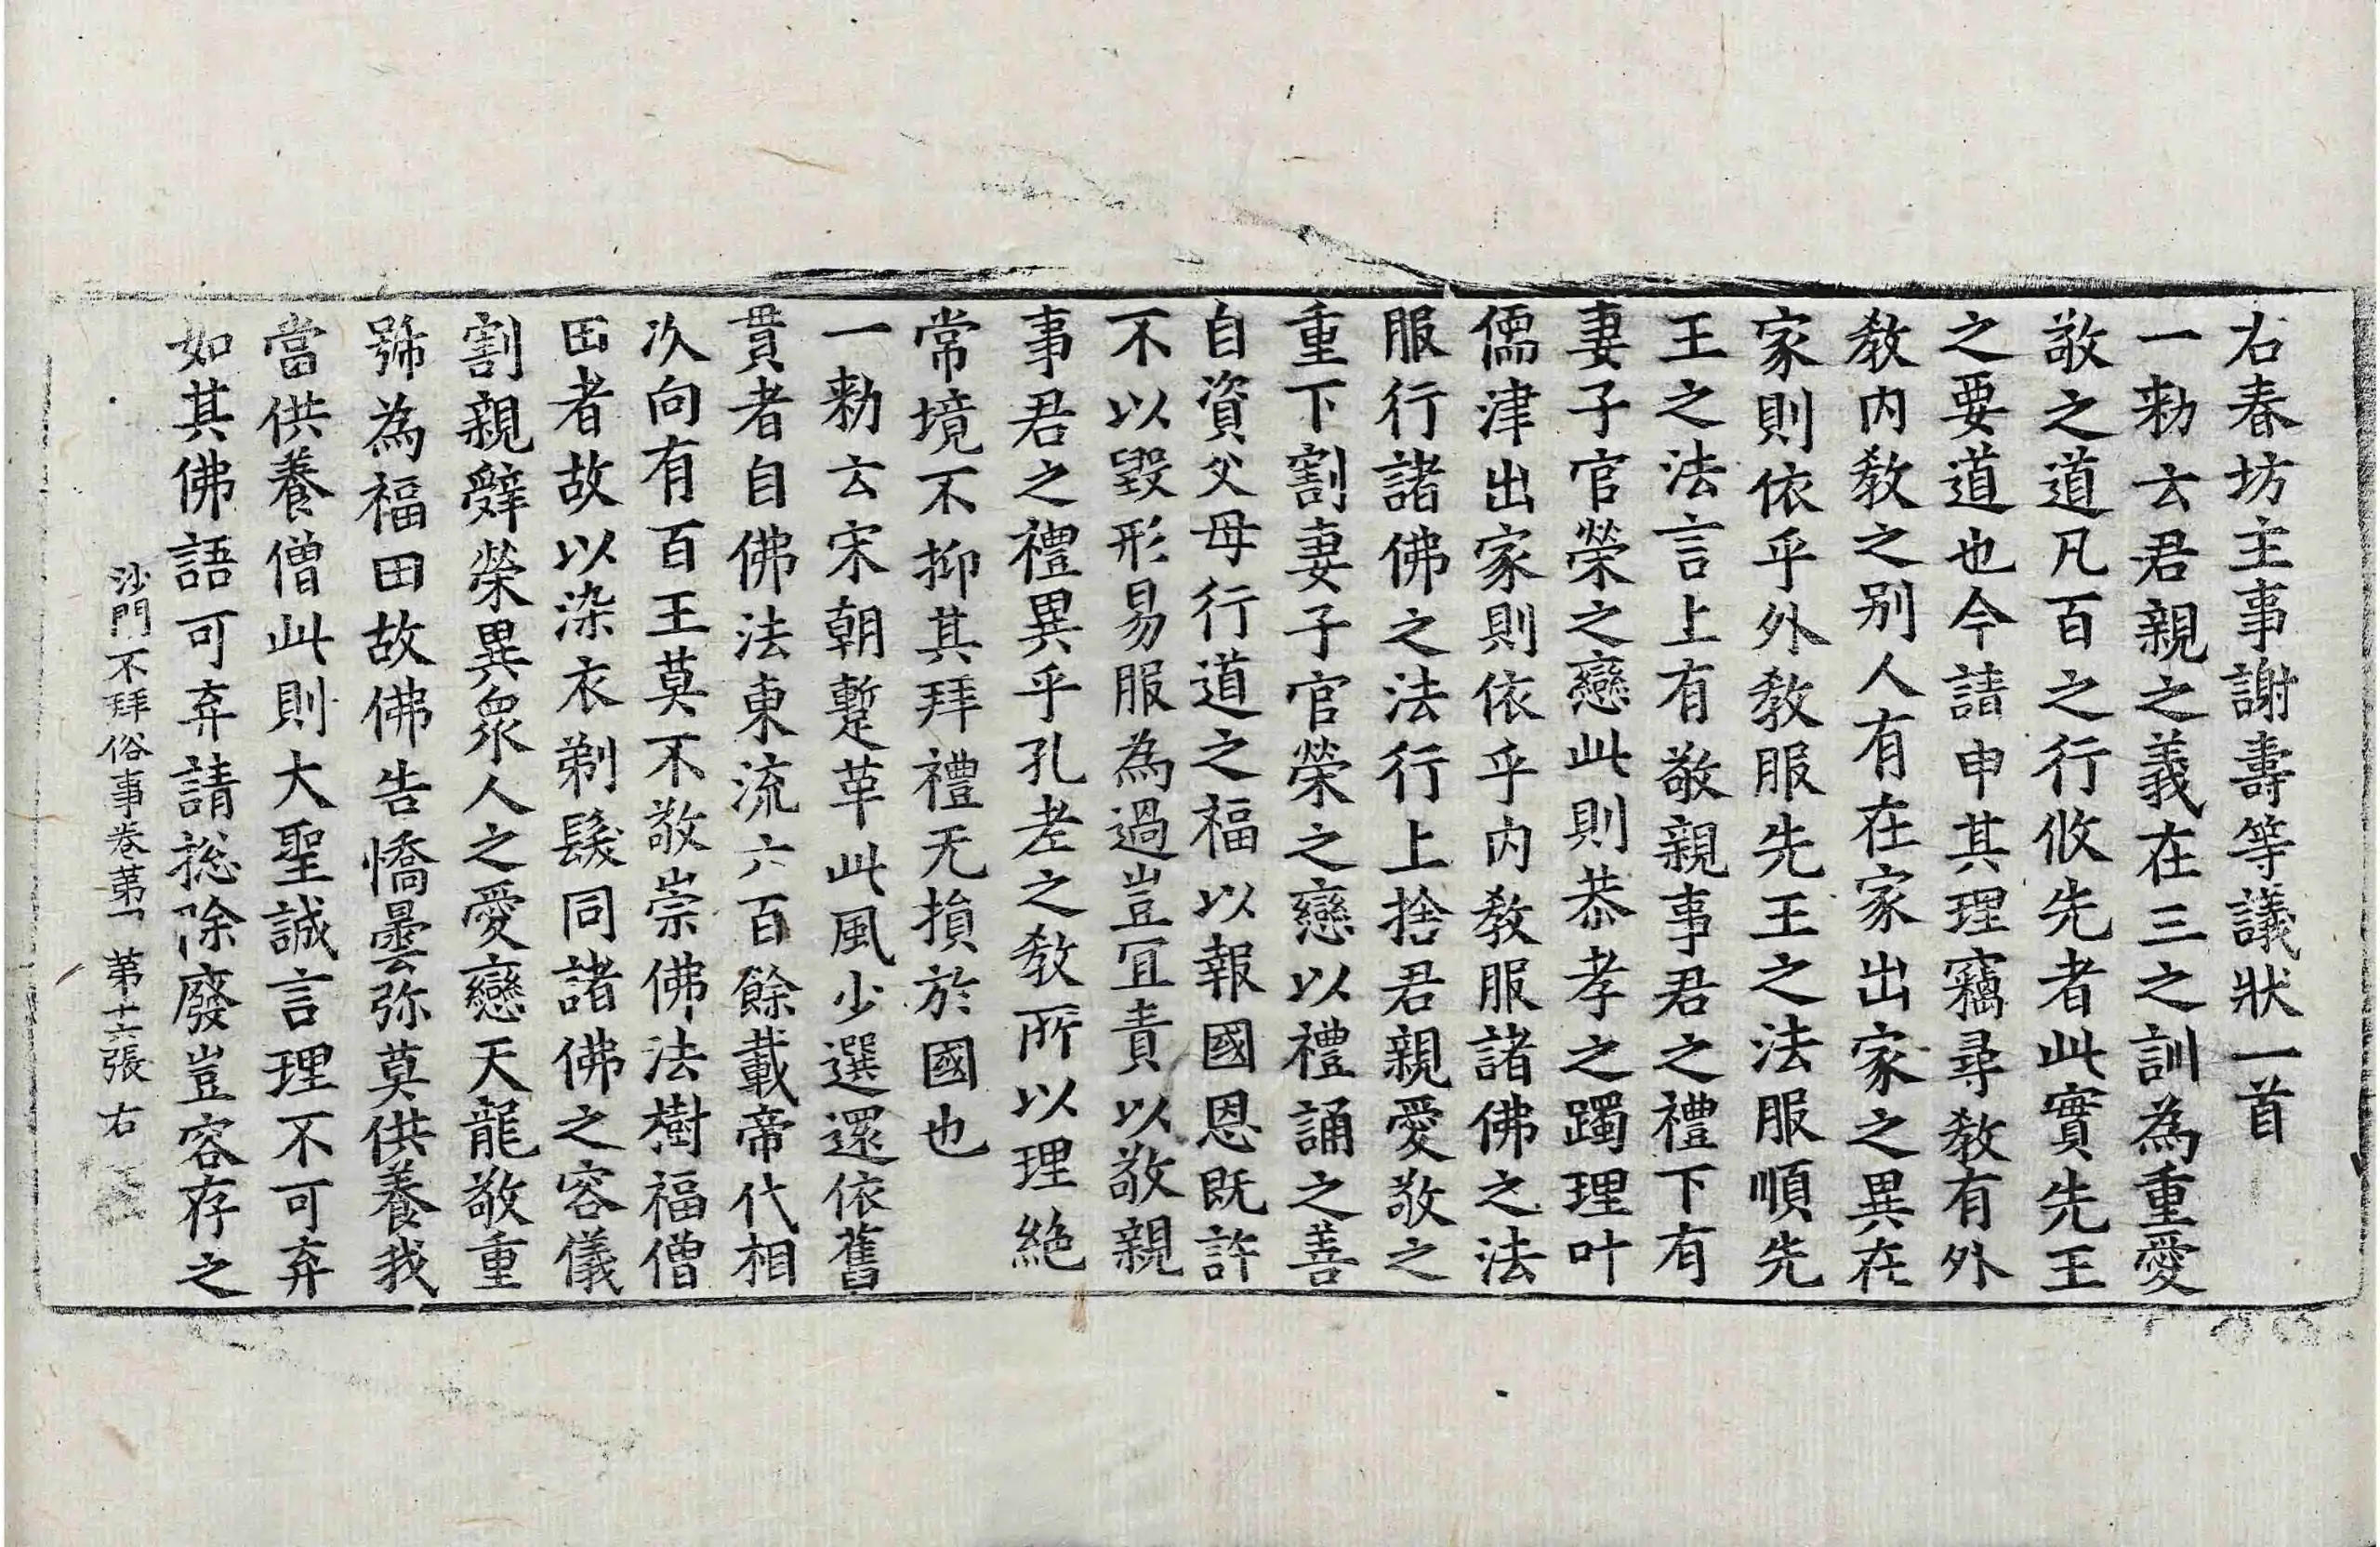 右春坊主事謝壽等議狀一首
一勑云君親之義在三之訓為重愛
敬之道凡百之行攸先者此實先王
之要道也今請申其理竊尋教有外
教内教之别人有在家出家之異在
家則依乎外教服先王之法服順先
王之法言上有敬親事君之禮下有
妻子官榮之戀此則恭孝之躅理叶
儒津出家則依乎内教服諸佛之法
服行諸佛之法行上捨君親愛敬之
重下割妻子官榮之戀以禮誦之善
自資父母行道之福以報國恩既許
不以毀形易服為過豈冝責以敬親
事君之禮異乎孔老之教所以理絶
常境不抑其拜禮无損於國也
一勑云宋朝蹔革此風少選還依舊
貫者自佛法東流六百餘載帝代相
次向有百王莫不敬崇佛法樹福僧
田者故以染衣剃髮同諸佛之容儀
割親辤榮異衆人之愛戀天龍敬重
號為福田故佛告憍曇弥莫供養我
當供養僧此則大聖誠言理不可弃
如其佛語可弃請捴除廢豈容存之
沙門不拜俗事卷苐一 第十六張 右